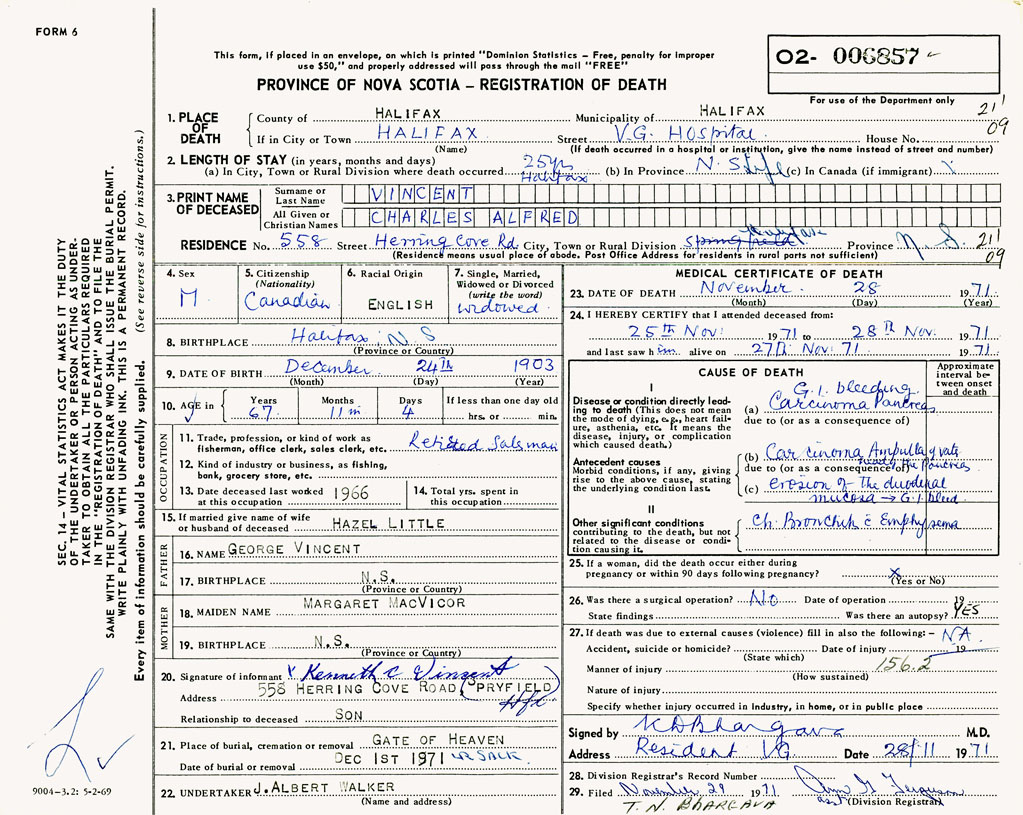 FORM 6
This form, if placed in an envelope, on which is printed "Dominion Statistics – Free, penalty for improper
use $50," and properly addressed will pass through the mail "FREE"
PROVINCE OF NOVA SCOTIA – REGISTRATION OF DEATH
02- 006857
For use of the Department only
21 09
1. PLACE OF DEATH
County of HALIFAX Municipality of HALIFAX
If in City or Town HALIFAX Street V.G. Hospital House No.
(Name) (If death occurred in a hospital or institution, give the name instead of street and number)
2. LENGTH OF STAY (in years, months and days)
(a) In City, Town or Rural Division where death occurred 25 yrs Halifax (b) In Province N.S. Life (c) In Canada (if immigrant)
3. PRINT NAME OF DECEASED
Surname or Last Name VINCENT
All Given or Christian Names CHARLES ALFRED
RESIDENCE No. 558 Street Herring Cove Rd City, Town or Rural Division Halifax Province N.S. 21 09
(Residence means usual place of abode. Post Office Address for residents in rural parts not sufficient)
4. Sex M
5. Citizenship (Nationality) Canadian
6. Racial Origin ENGLISH
7. Single, Married, Widowed or Divorced (write the word) widowed
8. BIRTHPLACE Halifax, N S
(Province or Country)
9. DATE OF BIRTH December 24th 1903
(Month) (Day) (Year)
10. AGE in Years 67 Months 11 m Days 4 If less than one day old hrs. or min.
OCCUPATION
11. Trade, profession, or kind of work as fisherman, office clerk, sales clerk, etc. Retired Salesman
12. Kind of industry or business, as fishing, bank, grocery store, etc.
13. Date deceased last worked at this occupation 1966
14. Total yrs. spent in this occupation
15. If married give name of wife or husband of deceased HAZEL LITTLE
FATHER
16. NAME GEORGE VINCENT
17. BIRTHPLACE N.S.
(Province or Country)
MOTHER
18. MAIDEN NAME MARGARET MACVICOR
19. BIRTHPLACE N.S.
(Province or Country)
20. Signature of informant Kenneth C Vincent
Address 558 HERRING COVE ROAD (SPRYFIELD) Hfx
Relationship to deceased SON
21. Place of burial, cremation or removal GATE OF HEAVEN
Date of burial or removal DEC 1ST 1971
22. UNDERTAKER J. ALBERT WALKER
(Name and address)
MEDICAL CERTIFICATE OF DEATH
23. DATE OF DEATH November 28 1971
(Month) (Day) (Year)
24. I HEREBY CERTIFY that I attended deceased from:
25th Nov 1971 to 28th Nov. 1971
and last saw him alive on 27th Nov 71 1971
CAUSE OF DEATH
Approximate interval between onset and death
I
Disease or condition directly leading to death (This does not mean the mode of dying, e.g., heart failure, asthenia, etc. It means the disease, injury, or complication which caused death.)
G.I. bleeding
(a) Carcinoma Pancreas
due to (or as a consequence of)
Antecedent causes
Morbid conditions, if any, giving rise to the above cause, stating the underlying condition last.
(b) Carcinoma Ampulla of vater
due to (or as a consequence of) the Pancreas
(c) erosion of the duodenal
mucosa → G.I. bleed
II
Other significant conditions contributing to the death, but not related to the disease or condition causing it.
Ch. Bronchitis c Emphysema
25. If a woman, did the death occur either during pregnancy or within 90 days following pregnancy? X
(Yes or No)
26. Was there a surgical operation? No Date of operation 19
State findings Was there an autopsy? YES
27. If death was due to external causes (violence) fill in also the following: – NA.
Accident, suicide or homicide? Date of injury 19
(State which)
Manner of injury 156.2
(How sustained)
Nature of injury
Specify whether injury occurred in industry, in home, or in public place
Signed by K D Bhargava M.D.
Address Resident VG Date 28/11 1971
28. Division Registrar's Record Number
29. Filed November 29 1971 Ann G Ferguson
asst (Division Registrar)
T. N. BHARGAVA
SEC. 14 – VITAL STATISTICS ACT MAKES IT THE DUTY
OF THE UNDERTAKER OR PERSON ACTING AS UNDER-
TAKER TO OBTAIN ALL THE PARTICULARS REQUIRED
IN THE "REGISTRATION OF DEATH" AND TO FILE THE
SAME WITH THE DIVISION REGISTRAR WHO SHALL ISSUE THE BURIAL PERMIT.
WRITE PLAINLY WITH UNFADING INK. THIS IS A PERMANENT RECORD.
Every item of information should be carefully supplied. (See reverse side for instructions.)
9004-3.2: 5-2-69